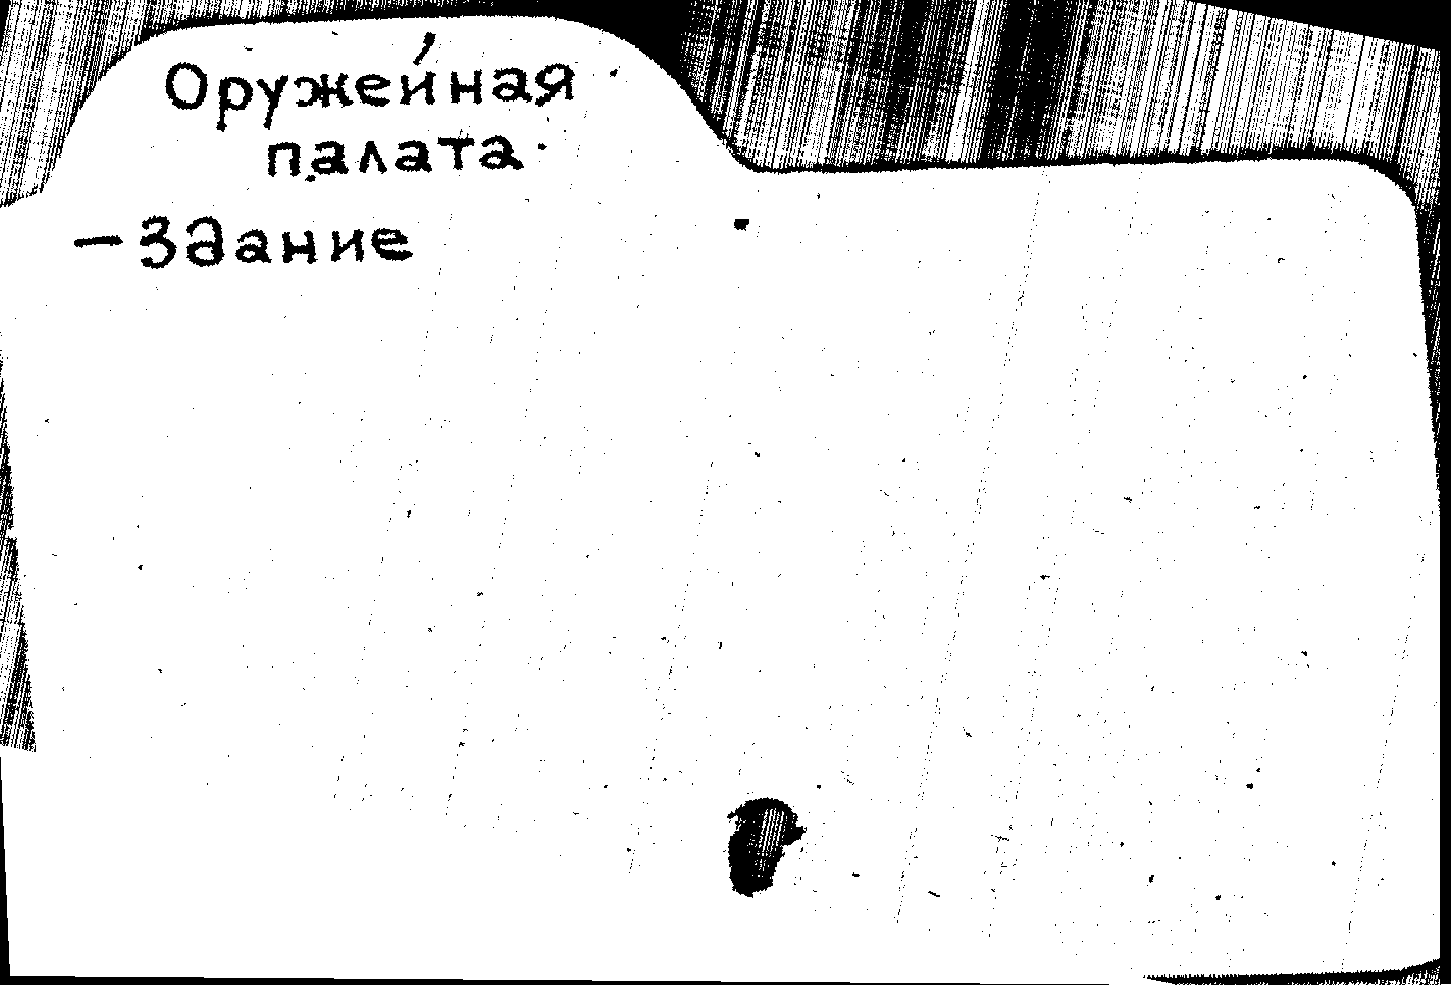 Оружейная
палата.
— Здание